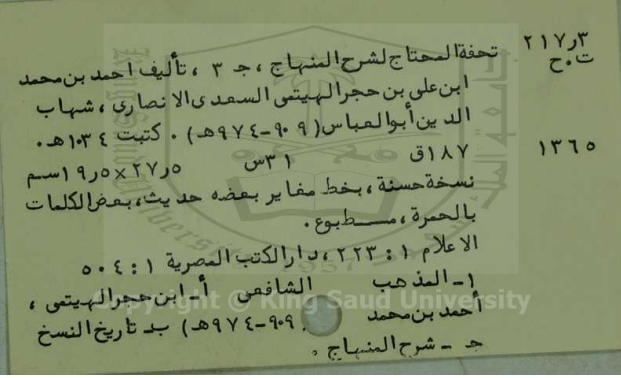 ٢١٧٫٣ تحفة المحتاج لشرح المنهاج ، جـ ٣ ، تأليف احمد بن محمد
ت٠ح ابن على بن حجر الهيتمى السعدى الانصارى ، شهاب
الدين أبو العباس (٩٠٩-٩٧٤هـ) ٠ كتبت ١٠٣٤هـ٠
١٣٦٥ ١٨٧ق ٣١س ٢٧٫٥×١٩٫٥سم
نسخة حسنة ، بخط مغاير بعضه حديث ، بعض الكلمات
بالحمرة ، مطبوع ٠
الاعلام ١ : ٢٢٣ ، دار الكتب المصرية ١ : ٥٠٤
١- المذهب الشافعى أ- ابن حجر الهيتمى ،
أحمد بن محمد (٩٠٩-٩٧٤هـ) ب- تاريخ النسخ
جـ - شرح المنهاج ٠
Copyright © King Saud University